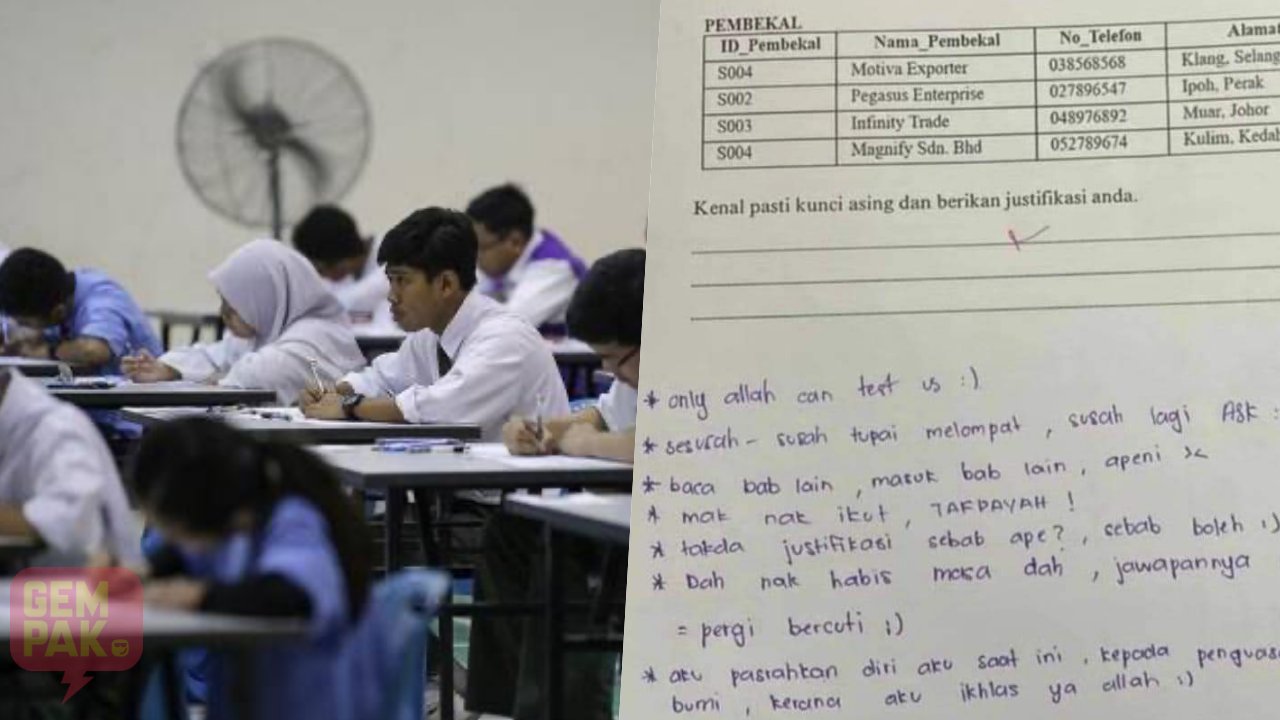 GEM
PAK
PEMBEKAL
ID_Pembekal Nama_Pembekal No_Telefon Alamat
S004 Motiva Exporter 038568568 Klang, Selang
S002 Pegasus Enterprise 027896547 Ipoh, Perak
S003 Infinity Trade 048976892 Muar, Johor
S004 Magnify Sdn. Bhd 052789674 Kulim, Kedah
Kenal pasti kunci asing dan berikan justifikasi anda.
* only allah can test us :)
* sesusah - susah tupai melompat , susah lagi ASK :
* baca bab lain , masuk bab lain , apeni ><
* mak nak ikut , TAKPAYAH !
* takda justifikasi sebab ape? , sebab boleh :)
* Dah nak habis masa dah , jawapannya
= pergi bercuti ;)
* aku pasrahkan diri aku saat ini , kepada penguasa
bumi , kerana aku ikhlas ya allah :)